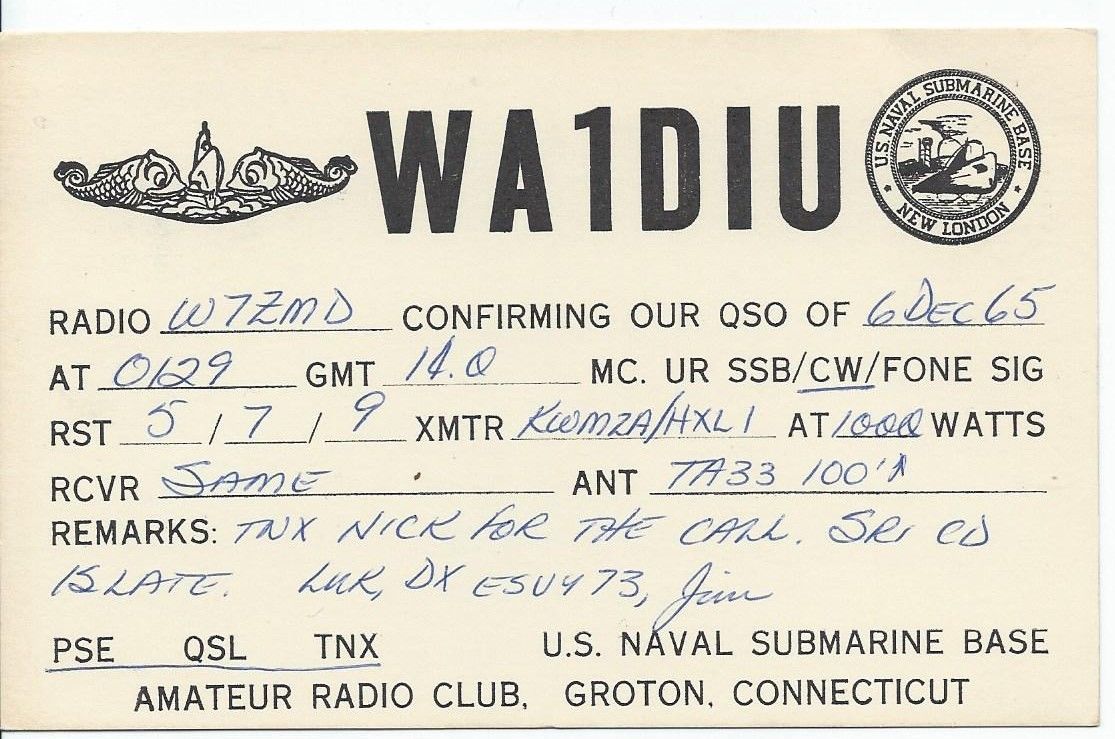 WA1DIU
U.S. NAVAL SUBMARINE BASE
NEW LONDON
RADIO W7ZMD CONFIRMING OUR QSO OF 6 DEC 65
AT 0129 GMT 14.0 MC. UR SSB/CW/FONE SIG
RST 5 / 7 / 9 XMTR KWM2A/HXL1 AT 1000 WATTS
RCVR SAME ANT TA33 100'↑
REMARKS: TNX NICK FOR THE CALL. SRI CD
IS LATE. LUK, DX ES UY 73, Jim
PSE QSL TNX U.S. NAVAL SUBMARINE BASE
AMATEUR RADIO CLUB, GROTON, CONNECTICUT